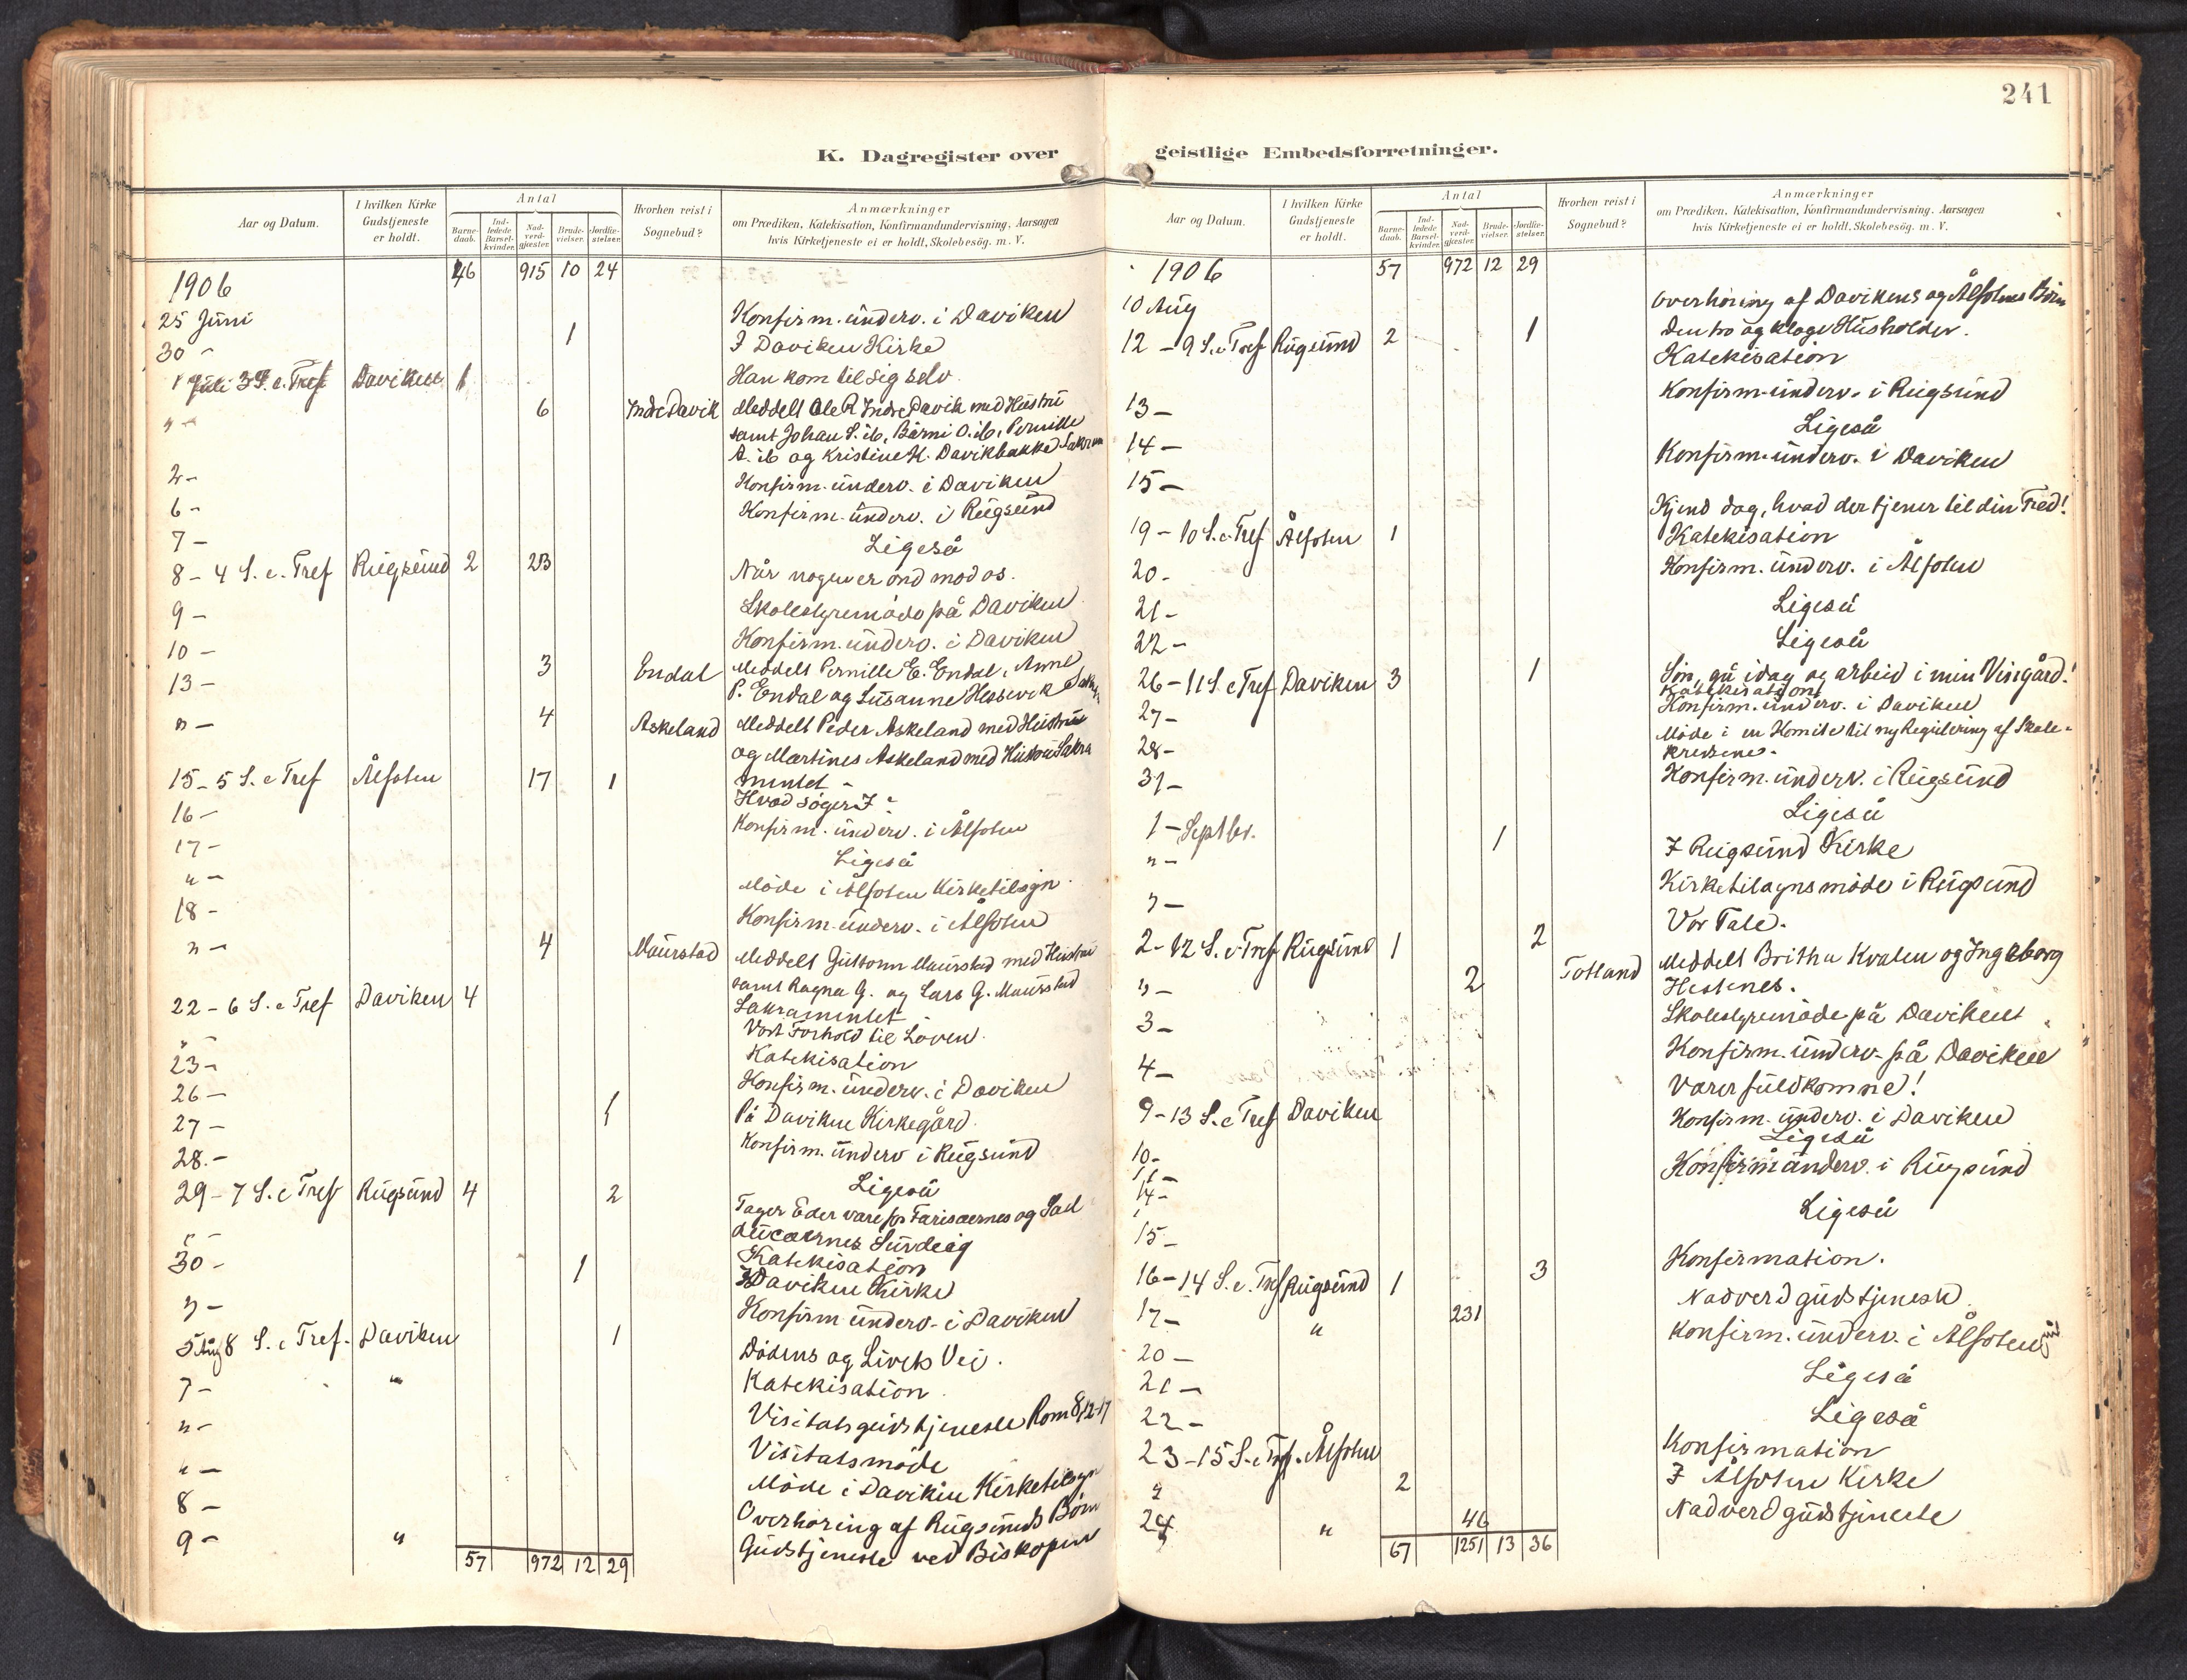 241
K. Dagregister over
Aar og Datum.
I hvilken Kirke Gudstjeneste er holdt.
Antal
Barne-daab.
Ind-ledede Barsel-kvinder.
Nad-verd-gjester.
Brude-vielser.
Jordfæ-stelser.
Hvorhen reist i Sognebud?
Anmærkninger
om Prædiken, Katekisation, Konfirmandundervisning, Aarsagen
hvis Kirketjeneste ei er holdt, Skolebesög. m. V.
1906 46 915 10 24
25 Juni Konfirm. underv. i Daviken
30 - 1 I Daviken Kirke
1 Juli 3 S. e. Tref Daviken 1 Han kom til sig selv.
" - 6 Indre Davik Meddelt Ole R. Indre Davik med Hustru
samt Johan S. ib, Börni O. ib, Pernille
A. ib og Kristine K. Davikbakke Sakram
2 - Konfirm. underv. i Daviken
6 - Konfirm. underv. i Rugsund
7 - Ligeså
8 - 4 S. e. Tref Rugsund 2 23 Når nogen er ond mod os.
9 - Skolestyremöde på Daviken
10 - Konfirm. underv. i Daviken
13 - 3 Endal Meddelt Pernille E. Endal, Anne
P. Endal og Susanne Hessevik Sakr
" - 4 Askeland Meddelt Peder Askeland med Hustru
og Martines Askeland med Hustru Sakra
mentet -
15 - 5 S. e Tref Ålfoten 17 1 Hvad söger I?
16 - Konfirm. underv. i Ålfoten
17 - Ligeså
" - Möde i Ålfoten Kirketilsogn.
18 - Konfirm. underv. i Ålfoten
" - 4 Maurstad Meddelt Guttorm Maurstad med Hustru
samt Ragna G. og Lars G. Maurstad
Sakramentet
22 - 6 S. e Tref Daviken 4 Vort Forhold til Loven.
" - Katekisation
23 - Konfirm. underv. i Daviken
26 - 1 På Daviken Kirkegård.
27 - Konfirm. underv i Rugsund
28. - Ligeså
29 - 7 S. e Tref Rugsund 4 2 Tager Eder vare for Farisæernes og Sad
ducæernes Surdeig
" - Katekisation
30 - 1 I Daviken Kirke
" - Konfirm underv. i Daviken
5 Aug 8 S. e Tref. Daviken 1 Dödens og Livets Vei.
Katekisation
7 - " Visitatsgudstjeneste Rom 8,12-17
" - Visitatsmöde
" - Möde i Daviken Kirketilsogn
8 - Overhöring af Rugsunds Börn
9 - " Gudstjeneste ved Biskopen
57 972 12 29
geistlige Embedsforretninger.
Aar og Datum.
I hvilken Kirke Gudstjeneste er holdt.
Antal
Barne-daab.
Ind-ledede Barsel-kvinder.
Nad-verd-gjester.
Brude-vielser.
Jordfæ-stelser.
Hvorhen reist i Sognebud?
Anmærkninger
om Prædiken, Katekisation, Konfirmandundervisning, Aarsagen
hvis Kirketjeneste ei er holdt, Skolebesög. m. V.
1906 57 972 12 29
10 Aug Overhöring af Davikens og Ålfotens Börn
12 - 9 S. e Tref Rugsund 2 1 Den tro og kloge Husholder.
Katekisation
13 - Konfirm. underv. i Rugsund
14 - Ligeså
15 - Konfirm. underv. i Daviken
19 - 10 S. e Tref Ålfoten 1 Kjend dog, hvad der tjener til din Fred!
Katekisation
20 - Konfirm. underv. i Ålfoten
21 - Ligeså
22 - Ligeså
26 - 11 S. e Tref Daviken 3 1 Sön, gå idag og arbeid i min Vingård!
Katekisation
27 - Konfirm. underv. i Daviken
28 - Möde i en Komite til ny Regulering af Skole-
kredsene.
31 - Konfirm. underv. i Rugsund
1 - Septbr. Ligeså
" - 1 I Rugsund Kirke
" - Kirketilsynsmöde i Rugsund
2 - 12 S. e Tref Rugsund 1 2 Vor Tale.
" - 2 Totland Meddelt Brithe Kvalen og Ingeborg
Hestenes.
3 - Skolestyremöde på Daviken
4 - Konfirm. underv. på Daviken
9 - 13 S. e Tref Daviken Værer fuldkomne!
10 - Konfirm. underv. i Daviken
11 - Ligeså
14 - Konfirm underv. i Rugsund
15 - Ligeså
16 - 14 S. e. Tref Rugsund 1 3 Konfirmation.
17 - " 231 Nadverdgudstjeneste
20 - Konfirm. underv. i Ålfoten
21 - Ligeså
22 - Ligeså
23 - 15 S. e Tref. Ålfoten Konfirmation
" 2 I Ålfoten Kirke
24 " 46 Nadverdgudstjeneste
67 1251 13 36